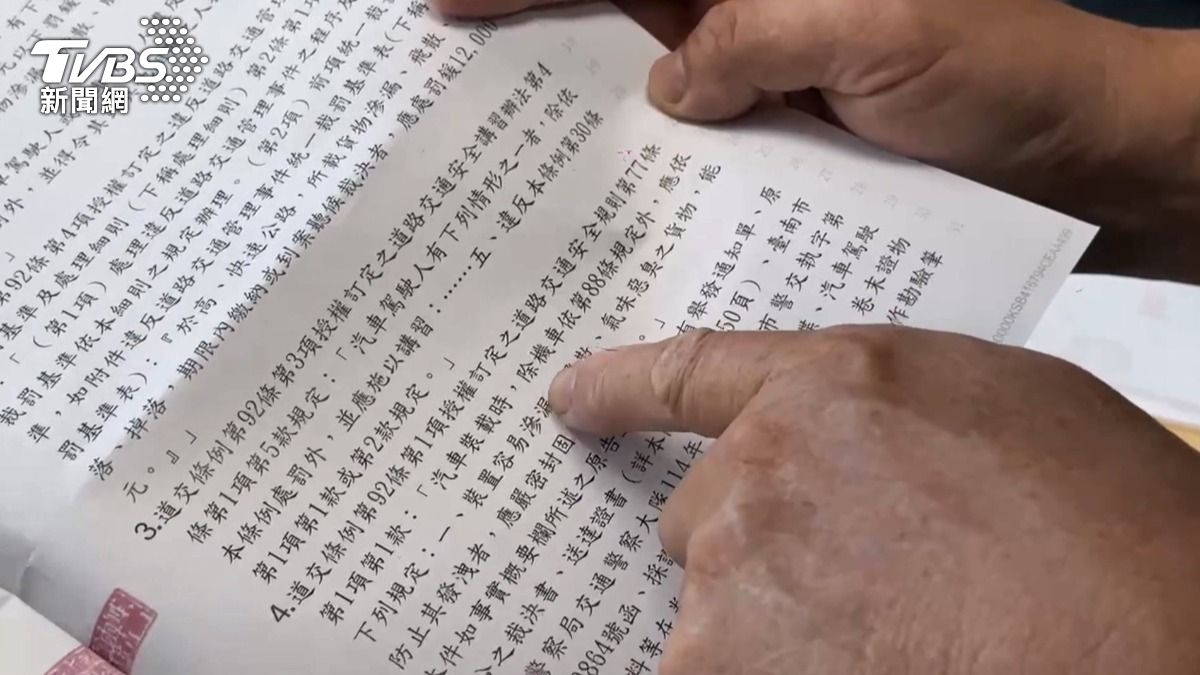 TVBS
新聞網
有下
元以下罰鍰
物滲漏
反
車駕駛人
外,並得令其
」
第92條第4項授權訂定之違反道路交通管理
基準及處理細則(下稱處理細則)第2條第1項
:「(第1項)處理違反道路交通管理事件之程序及
裁罰基準依本細則之規定辦理。(第2項)前項統一裁罰
準,如附件違反道路交通管理事件統一裁罰基準表(下稱
罰基準表):『於高、快速公路,所載貨物滲漏、飛散
落、掉落,期限內繳納或到案聽候裁決者,應處罰鍰12,000
元。』」
3.道交條例第92條第3項授權訂定之道路交通安全講習辦法第4
條第1項第5款規定:「汽車駕駛人有下列情形之一者,除依
本條例處罰外,並應施以講習:……五、違反本條例第30條
第1項第1款或第2款規定。」
4.道交條例第92條第1項授權訂定之道路交通安全規則第77條
第1項第1款:「汽車裝載時,除機車依第88條規定外,應依
下列規定:一、裝置容易滲漏、氣味惡臭之貨物,能
防止其發洩者,應嚴密封固。」
本件如事實概要欄所述之原告 有舉發通知單、原
之裁決書、送達證書(詳本 50頁)、臺南市
警察局交通警察大隊114年 市警交執字第
864號函、採 、汽車駕駛
料等在 卷末證物
作勘驗筆
26
27
28
29
30
31